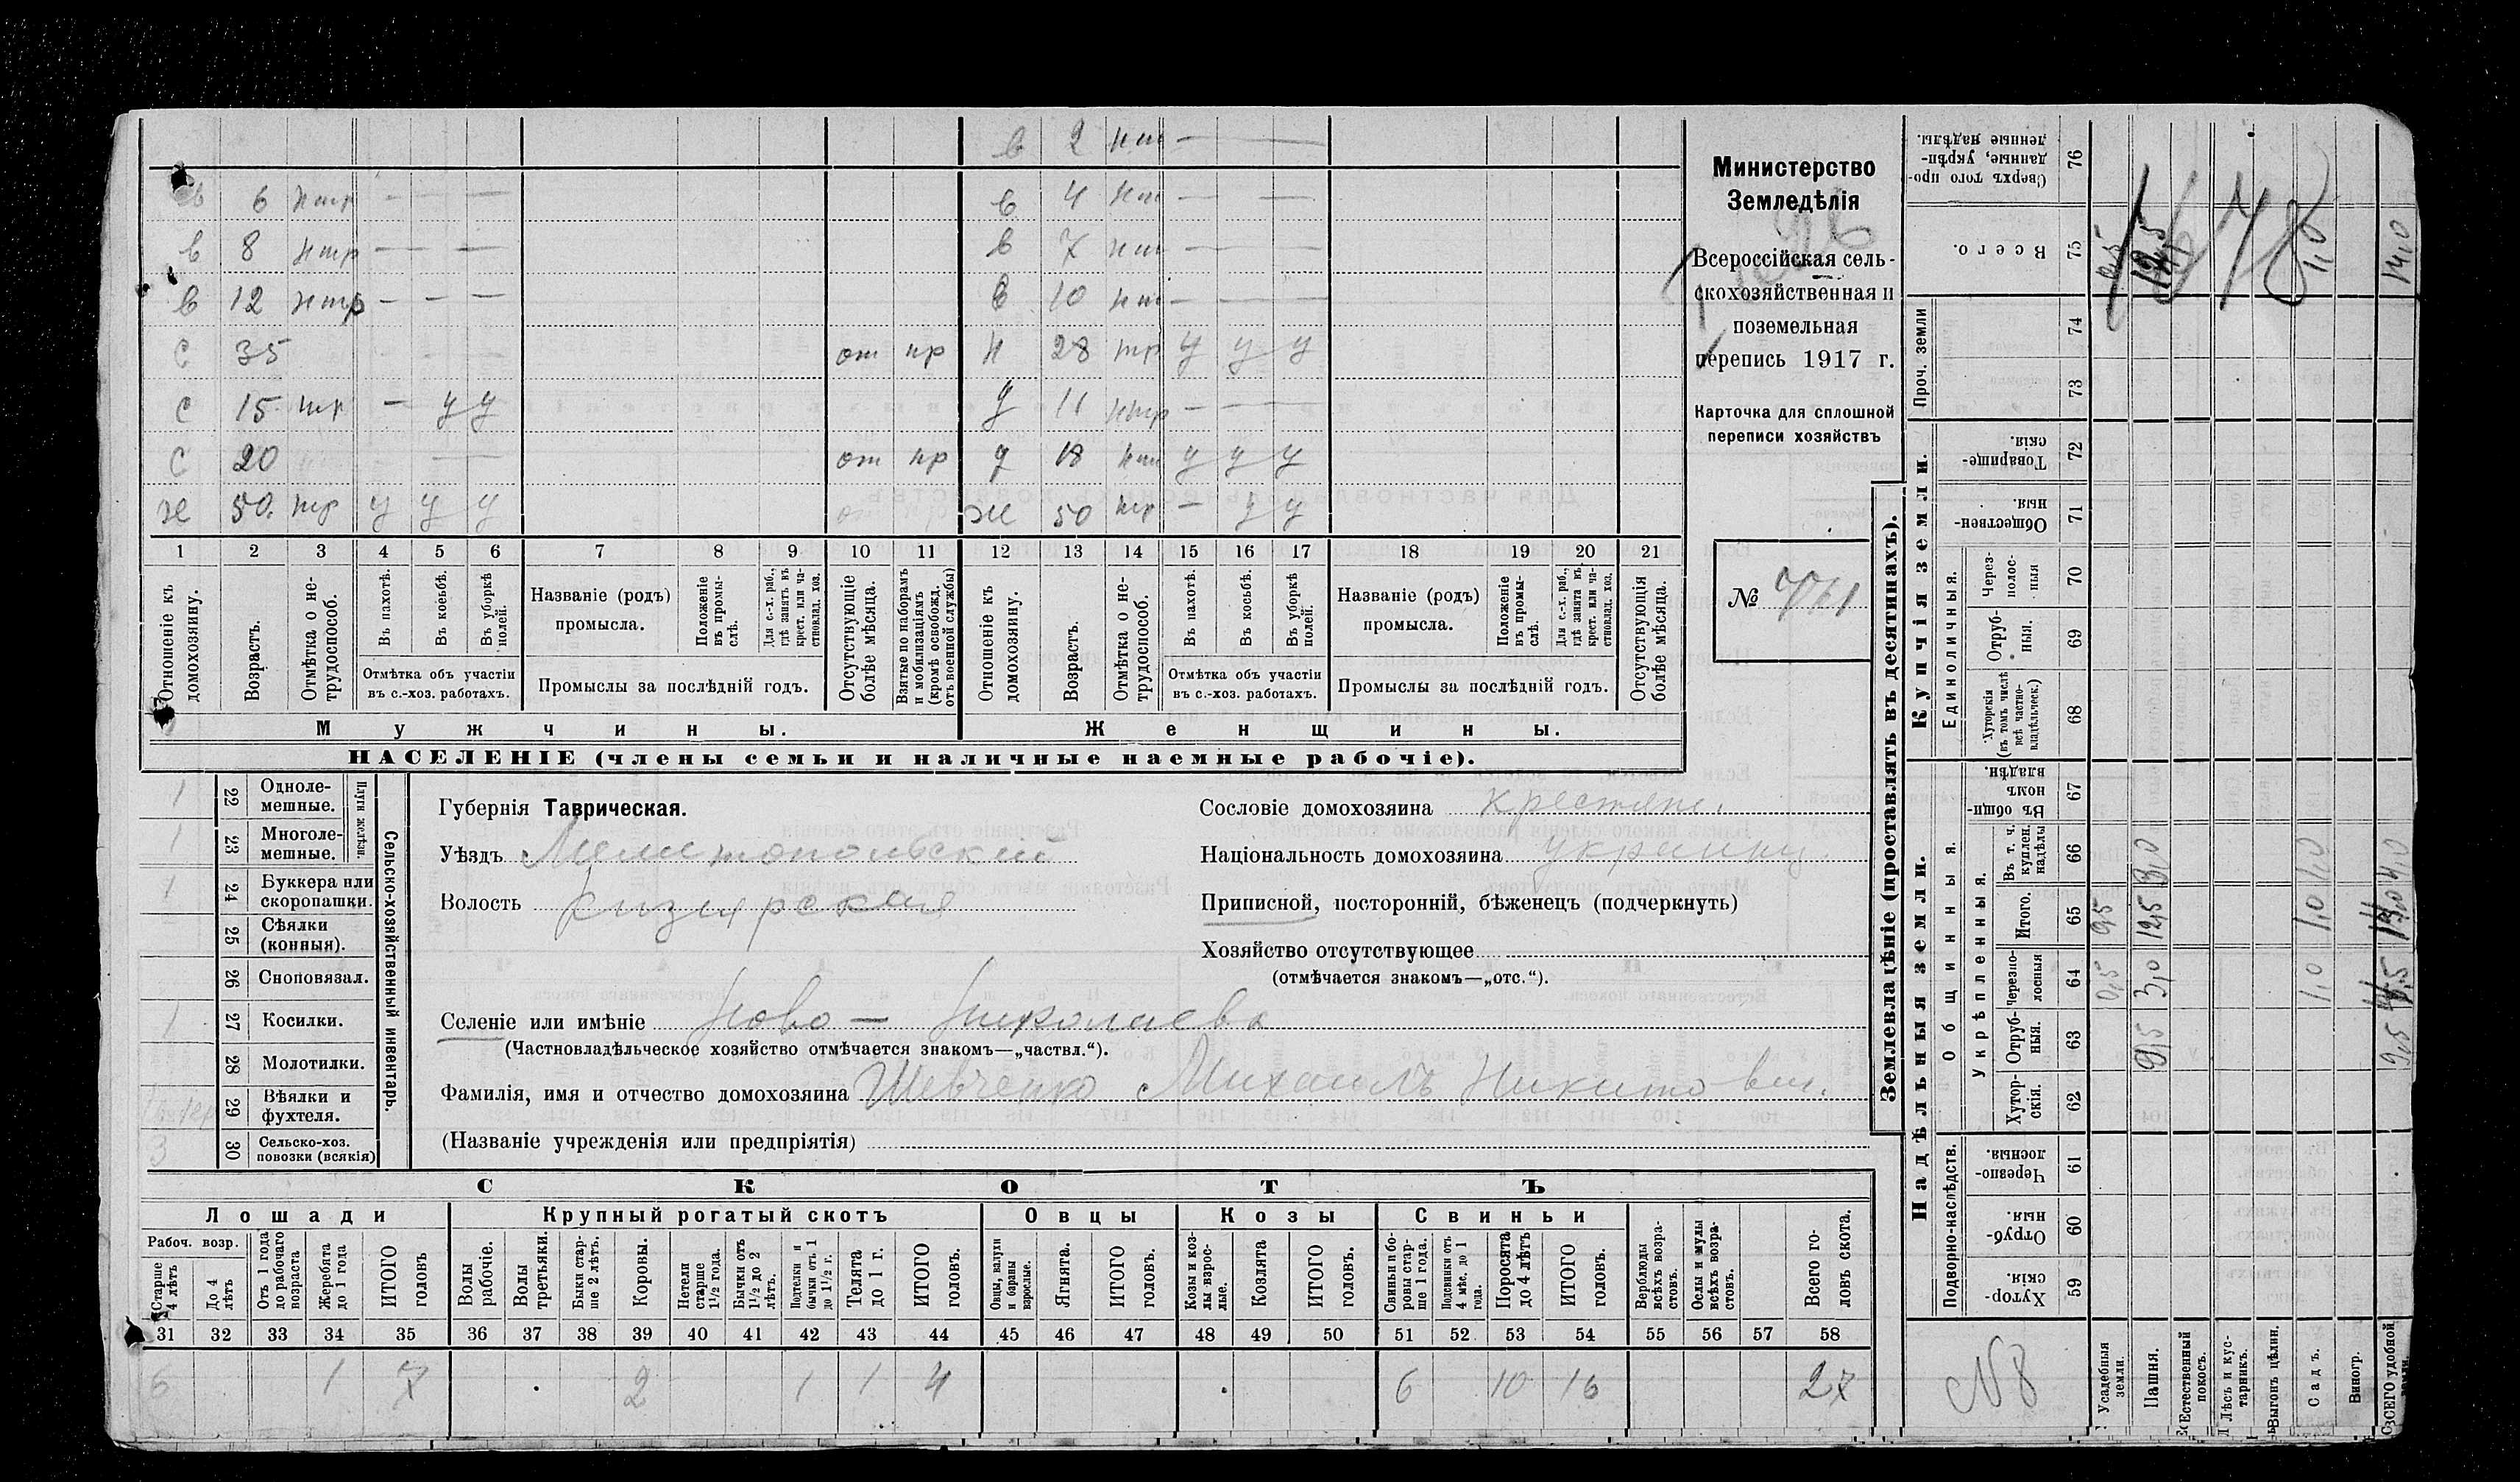 в 2 нт — —
в 6 нтр — — — в 4 нт — —
в 8 нтр — — — в 7 нт — — —
в 12 нтр — — — в 10 нт — — —
с 35 от пр н 28 тр у у у
с 15 тр — у у д 11 нтр — — —
с 20 от пр д 18 у у у
ж 50 тр у у у ж 50 тр — у у
1 2 3 4 5 6 7 8 9 10 11 12 13 14 15 16 17 18 19 20 21
Отношеніе къ домохозяину.
Возрастъ.
Отмѣтка о не-трудоспособ.
Въ пахотѣ.
Въ косьбѣ.
Въ уборкѣ полей.
Отмѣтка объ участіи
въ с.-хоз. работахъ.
Названіе (родъ)
промысла.
Положеніе въ промы-слѣ.
Для с.-х. раб., гдѣ занятъ въ крест. или ча-стновлад. хоз.
Промыслы за послѣдній годъ.
Отсутствующіе болѣе мѣсяца.
Взятые по наборамъ и мобилизаціямъ (кромѣ освобожд. отъ военной службы)
Отношеніе къ домохозяину.
Возрастъ.
Отмѣтка о не-трудоспособ.
Въ пахотѣ.
Въ косьбѣ.
Въ уборкѣ полей.
Отмѣтка объ участіи
въ с.-хоз. работахъ.
Названіе (родъ)
промысла.
Положеніе въ промы-слѣ.
Для с.-х. раб., гдѣ занята въ крест. или ча-стновлад. хоз.
Промыслы за послѣдній годъ.
Отсутствующія болѣе мѣсяца.
Мужчины. Женщины.
НАСЕЛЕНІЕ (члены семьи и наличные наемные рабочіе).
Министерство
Земледѣлія
Всероссійская сель-
скохозяйственная и
поземельная
перепись 1917 г.
Карточка для сплошной
переписи хозяйствъ
№ 761
1 22 Одноле-мешные.
1 23 Многоле-мешные.
Плуги желѣзн.
1 24 Буккера или скоропашки.
25 Сѣялки (конныя).
26 Сноповязал.
1 27 Косилки.
28 Молотилки.
29 Вѣялки и фухтеля.
3 30 Сельско-хоз. повозки (всякія)
Сельско-хозяйственный инвентарь.
Губернія Таврическая.
Уѣздъ Мелитопольский
Волость
Селеніе или имѣніе Ново — Николаевка
(Частновладѣльческое хозяйство отмѣчается знакомъ—„частвл.“).
Фамилія, имя и отчество домохозяина Шевченко Михаилъ Никитович.
(Названіе учрежденія или предпріятія)
Сословіе домохозяина крестяне.
Національность домохозяина украинц
Приписной, посторонній, бѣженецъ (подчеркнуть)
Хозяйство отсутствующее
(отмѣчается знакомъ—„отс.“).
СКОТЪ
Лошади Крупный рогатый скотъ Овцы Козы Свиньи
Рабоч. возр.
Старше 4 лѣтъ
До 4 лѣтъ
Отъ 1 года до рабочаго возраста
Жеребята до 1 года
ИТОГО головъ
Волы рабочіе.
Волы третьяки.
Быки стар-ше 2 лѣтъ.
Коровы.
Нетели старше 1½ года.
Бычки отъ 1½ до 2 лѣтъ.
Подтелки и бычки отъ 1 до 1½ г.
Телята до 1 г.
ИТОГО головъ.
Овцы, валухи и бараны взрослые.
Ягнята.
ИТОГО головъ.
Козы и коз-лы взрос-лые.
Козлята
ИТОГО головъ.
Свиньи и бо-ровы стар-ше 1 года.
Подсвинки отъ 4 мѣс. до 1 года.
Поросята до 4 лѣтъ
ИТОГО головъ.
Верблюды всѣхъ возра-стовъ.
Ослы и мулы всѣхъ возра-стовъ.
Всего го-ловъ скота.
31 32 33 34 35 36 37 38 39 40 41 42 43 44 45 46 47 48 49 50 51 52 53 54 55 56 57 58
6 1 7 2 1 1 4 6 10 16 27
Землевладѣніе (проставлять въ десятинахъ).
Надѣльныя земли. Купчія земли.
Подворно-наслѣдств.
Общинныя.
Укрѣпленныя.
Единоличныя.
Проч. земли
59 Хутор-скія.
60 Отруб-ныя.
61 Черезпо-лосныя.
62 Хутор-скія.
63 Отруб-ныя.
64 Черезпо-лосныя
65 Итого.
66 Въ т. ч. куплен. надѣлы
67 Въ общин-номъ владѣн.
68 Хуторскія (въ томъ числѣ всѣ частно-владѣльческ.)
69 Отруб-ныя.
70 Через-полос-ныя
71 Обществен-ныя.
72 Товарище-скія.
73
74
75 Всего.
76 Сверхъ того про-данные, укрѣп-ленные надѣлы.
N8
Усадебныя земли. 0,5
Пашня. 9,5 3,0 12,5 3,0 12,5
Естественный покосъ.
Лѣсъ и кус-тарникъ.
Выгонъ цѣлин.
Садъ. 1,0 1,0 1,0 1,0
Виногр.
ВСЕГО удобной земли. 9,5 4,0 14,0